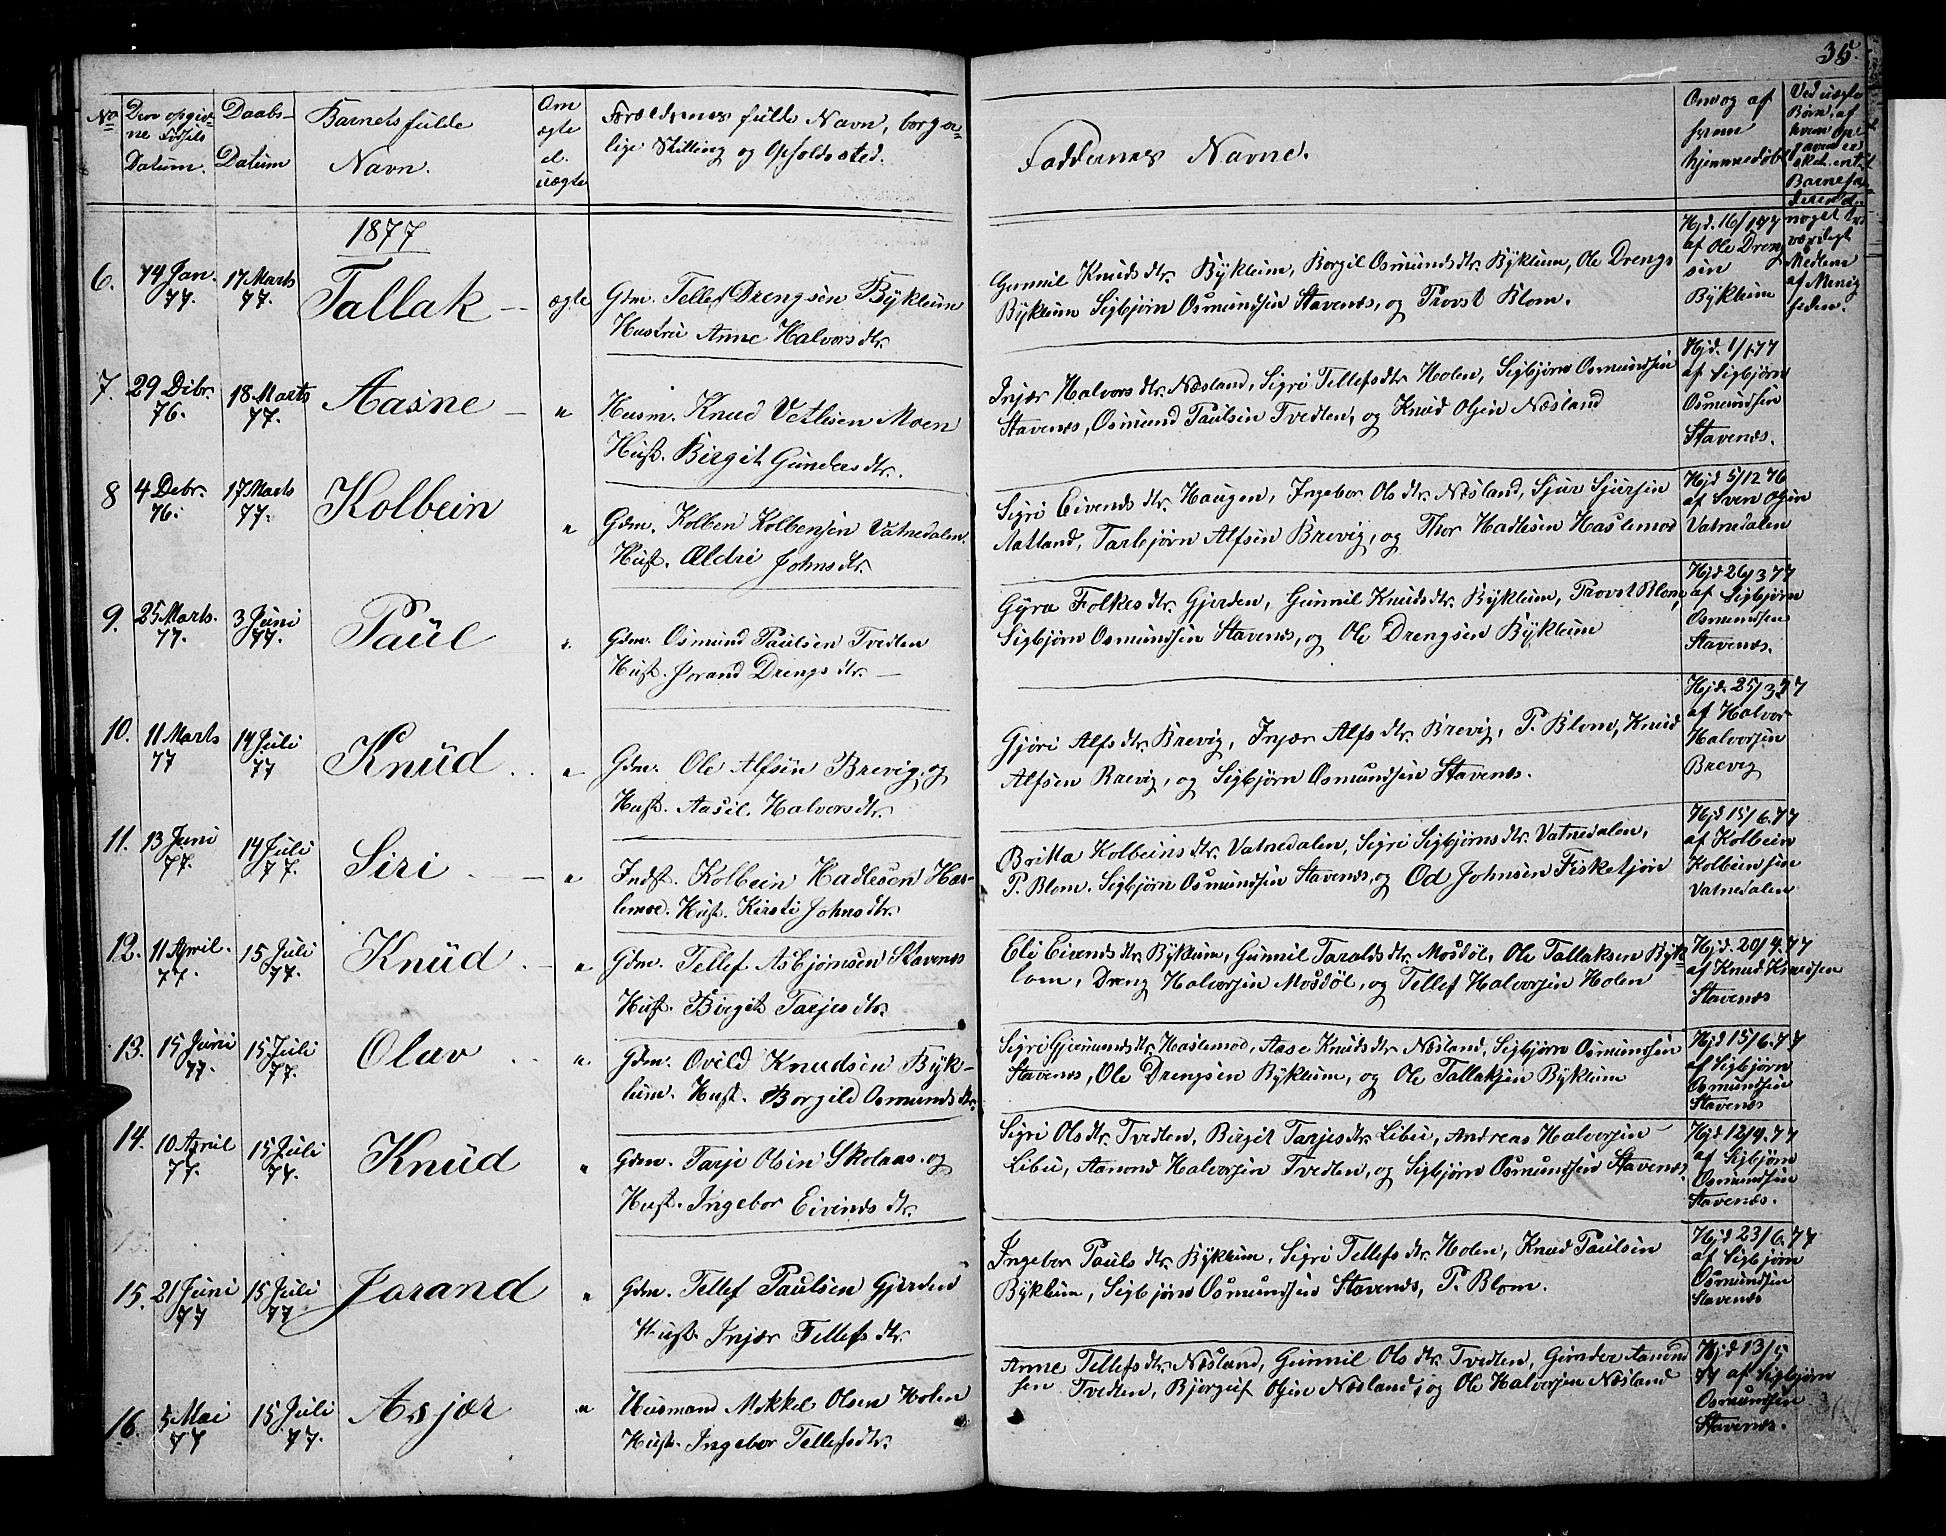 35.
No
Den opgiv-
ne Fødsels
Datum.
Daabs-
Datum
Barnets fulde
Navn.
Om
ægte
el.
uægte
Forældrenes fulde Navn, borger-
lige Stilling og Opholdssted.
Faddernes Navne.
Om og af
hvem
hjemmedøbt
Ved uægte
Børn, af
hvem op-
Barnefa-
noget tro-
værdigt
Medlem
af Menig
heden.
1877
6.
14 Jan.
77.
17 Marts
77.
Tallak
ægte
Gdm. Tellef Drengsen Bykleum
Hustru Anne Halvorsdtr.
Gunnil Knudsdtr. Bykleum, Borgil Osmundsdtr. Bykleum, Ole Drengs
Bykleum Sigbjørn Osmundsen Stavenæs, og Provst Blom.
Hjd. 16/1 77
af Ole Dreng
sen
Bykleum
7.
29 Dibr.
76.
18 Marts
77.
Aasne
"
Husm. Knud Vetlesen Moen
Hust. Birgit Gundersdtr.
Injær Halvorsdtr. Næsland, Sigri Tellefsdtr. Holen, Sigbjørn Osmundsen
Stavenæs, Osmund Paulsen Tvedten, og Knud Olsen Næsland
Hjd. 1/1 77
af Sigbjørn
Osmundsen
Stavenæs.
8
4 Debr.
76.
17 Marts
77.
Kolbein
"
Gdm. Kolben Kolbensen Vatnedalen.
Hust. Ældri Johnsdtr.
Sigri Eivendsdtr. Haugen, Ingebor Olsdtr. Næsland, Sjur Sjursen
Aatland, Tarbjørn Alfsen Brevig, og Thor Hadlesen Haslemod
Hjd 5/12 76
af Sven Olsen
Vatnedalen
9.
25 Marts.
77.
3 Juni
77.
Paul
"
Gdm. Osmund Paulsen Tvedten
Hust. Jorand Drengsdtr.
Gyro Folkesdtr. Gjerden, Gunnil Knudsdtr. Bykleum, Provst Blom,
Sigbjørn Osmundsen Stavenæs, og Ole Drengsen Bykleum
Hjd 26/3 77
af Sigbjørn
Osmundsen
Stavenæs.
10.
11 Marts
77
14 Juli
77
Knud
"
Gdm. Ole Alfsen Brevig, og
Hust. Aasil Halvorsdtr.
Gjøri Alfsdtr. Brevig, Injær Alfsdtr. Brevig, P. Blom, Knud
Alfsen Brevig, og Sigbjørn Osmundsen Stavenæs.
Hjd. 25/3 77
af Halvor
Halvorsen
Brevig
11.
13 Juni
77.
14 Juli
77.
Siri
"
Indst. Kolbein Hadlesen Has-
lemoe. Hust. Kirsti Johnsdtr.
Britta Kolbeinsdtr. Vatnedalen, Sigri Sigbjørnsdtr. Vatnedalen,
P. Blom. Sigbjørn Osmundsen Stavenæs, og Od Johnsen Fisketjøn
Hjd 15/6. 77
af Kolbein
Kolbeinsen
Vatnedalen
12.
11 April.
77.
15 Juli
77.
Knud
"
Gdm. Tellef Asbjørnsen Stavenæs
Hust. Birgit Tarjesdtr.
Eli Eivendsdtr. Bykleum, Gunnil Taraldsdtr. Mosdøl, Ole Tallaksen Byk
lom, Dreng Halvorsen Mosdøl, og Tellef Halvorsen Holen
Hjd. 20/4. 77
af Knud Knudsen
Stavenæs
13.
15 Juni
77.
15 Juli
77.
Olav
"
Gdm. Ovild Knudsen Byk-
lum. Hust. Borgild Osmundsdtr.
Sigri Gjermundsdtr. Haslemod, Aase Knudsdtr. Næsland, Sigbjørn Osmundsen
Stavenæs, Ole Drengsen Bykleum, og Ole Tallaksen Bykleum
Hjd 15/6. 77
af Sigbjørn
Osmundsen
Stavenæs
14.
10 April
77.
15 Juli
77.
Knud
"
Gdm. Tarje Olsen Skolaas. og
Hust. Ingebor Eivendsdtr.
Sigri Olsdtr. Tvedten, Birgit Tarjesdtr. Libu, Andreas Halvorsen
Libu, Aanond Halvorsen Tvedten, og Sigbjørn Osmundsen Stavenæs.
Hjd 12/4. 77
af Sigbjørn
Osmundsen
Stavenæs.
15.
21 Juni
77
15 Juli
77.
Jorand
"
Gdm. Tellef Paulsen Gjerden
Hust. Injær Tellefsdtr.
Ingebor Paulsdtr. Bykleum, Sigri Tellefsdtr. Holen, Knud Paulsen
Bykleum, Sigbjørn Osmundsen Stavenæs, P. Blom.
Hjd 23/6. 77
af Sigbjørn
Osmundsen
Stavenæs
16.
5 Mai
77
15 Juli
77.
Asjær
"
Husmand Mikkel Olsen Holen
Hust. Ingebor Tellefsdtr.
Anne Tellefsdtr. Næsland, Gunnil Olsdtr. Tvedten, Gunder Aanund
sen Tvedten, Bjorguf Olsen Næsland, og Ole Halvorsen Næsland
Hjd 13/5
77 af Sigbjørn
Osmundsen
Stavenæs.